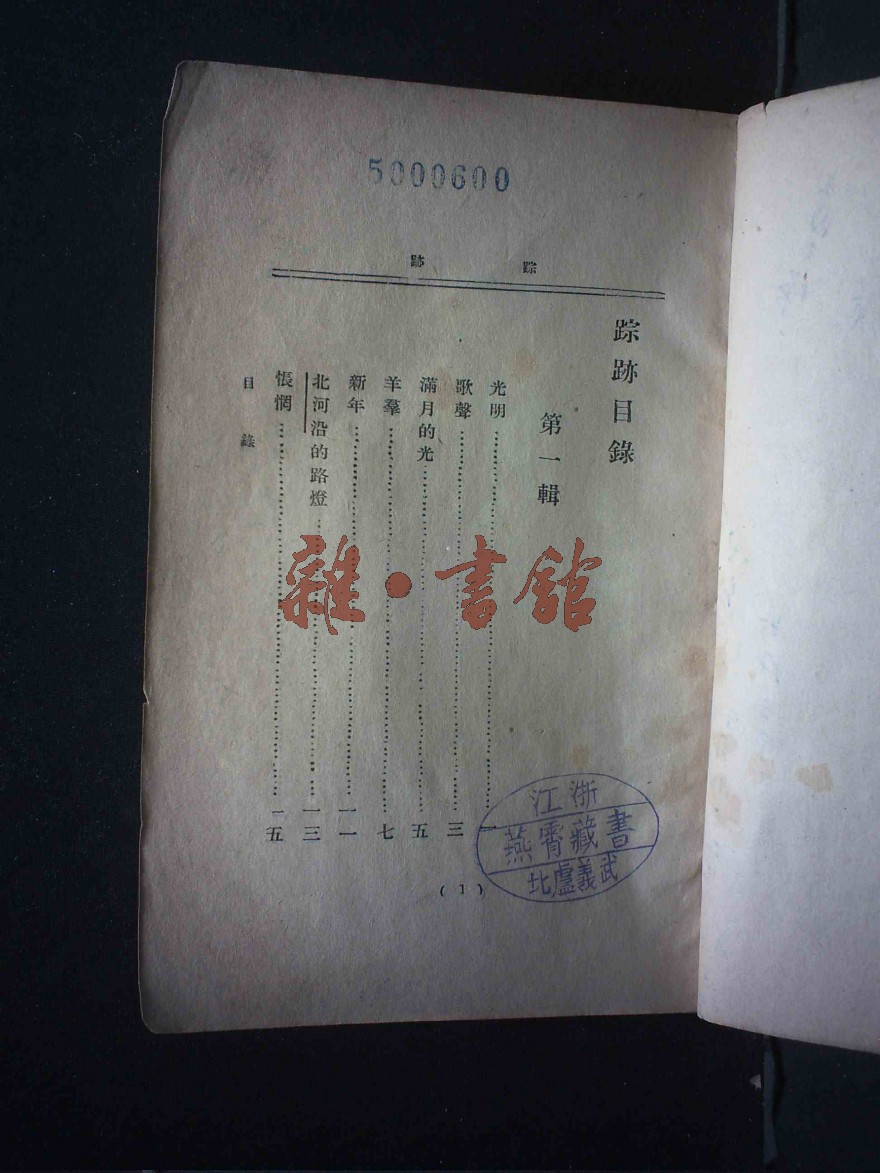 5000600
踪跡
踪跡目錄
第一輯
光明……一
歌聲……三
滿月的光……五
羊羣……七
新年……一一
北河沿的路燈……一三
悵惘……一五
目錄
(1)
雜·書館
浙江
燕霄藏書
武義盧北